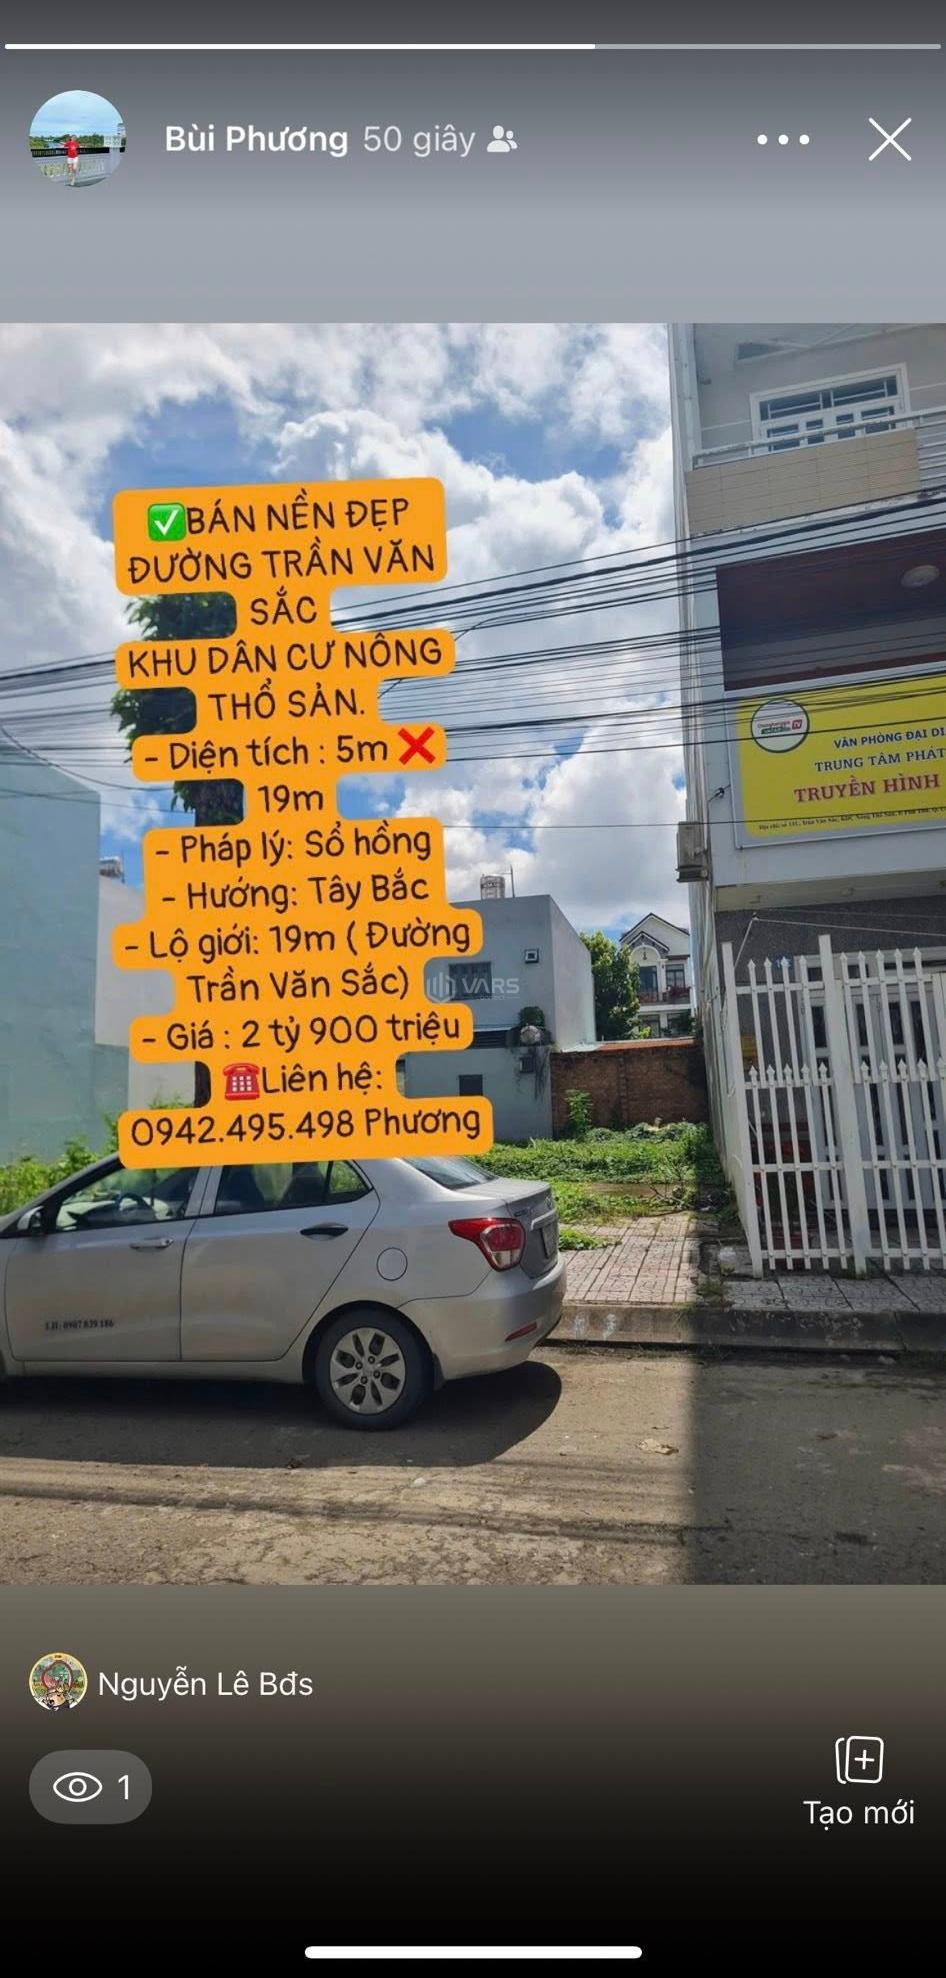 Bùi Phương 50 giây
✅BÁN NỀN ĐẸP
ĐƯỜNG TRẦN VĂN
SẮC
KHU DÂN CƯ NÔNG
THỔ SẢN.
- Diện tích : 5m ❌
19m
- Pháp lý: Sổ hồng
- Hướng: Tây Bắc
- Lộ giới: 19m ( Đường
Trần Văn Sắc)
- Giá : 2 tỷ 900 triệu
☎️Liên hệ:
0942.495.498 Phương
VARS
VĂN PHÒNG ĐẠI DI
TRUNG TÂM PHÁT
TRUYỀN HÌNH
TV
LH: 0907 839 186
Nguyễn Lê Bđs
1
Tạo mới